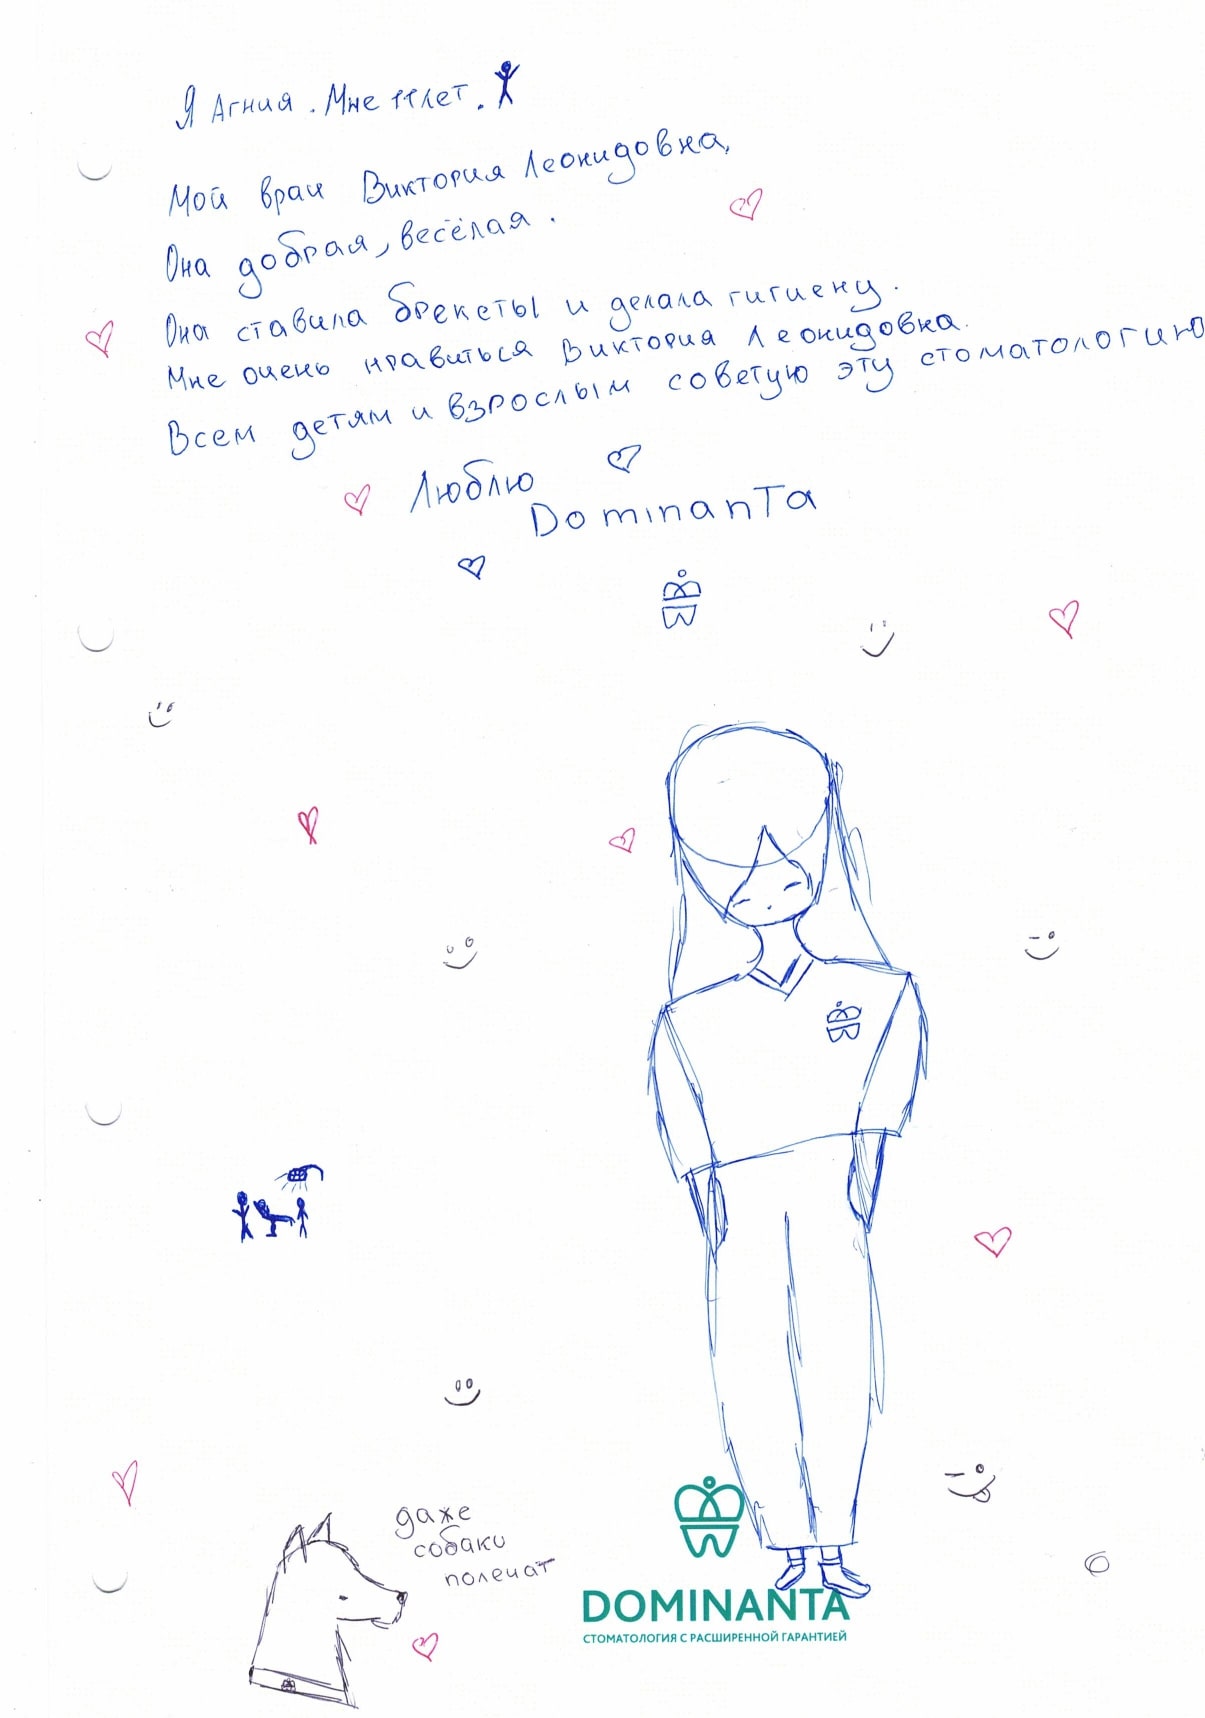 Я Агния. Мне 11 лет.
Мой врач Виктория Леонидовна,
Она добрая, весёлая.
Она ставила брекеты и делала гигиену.
Мне очень нравиться Виктория Леонидовна.
Всем детям и взрослым советую эту стоматологию
Люблю
Dominanта
даже
собаки
полечат
DOMINANTA
СТОМАТОЛОГИЯ С РАСШИРЕННОЙ ГАРАНТИЕЙ